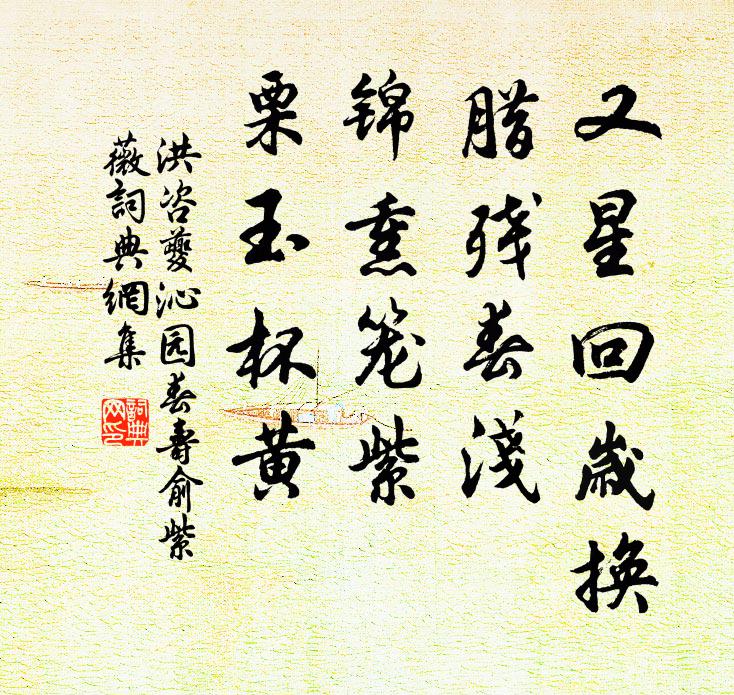 又星回歲換
腊残春淺
锦熏笼紫
栗玉杯黄
洪咨夔沁园春壽俞紫
薇詞典網集
詞典
网印